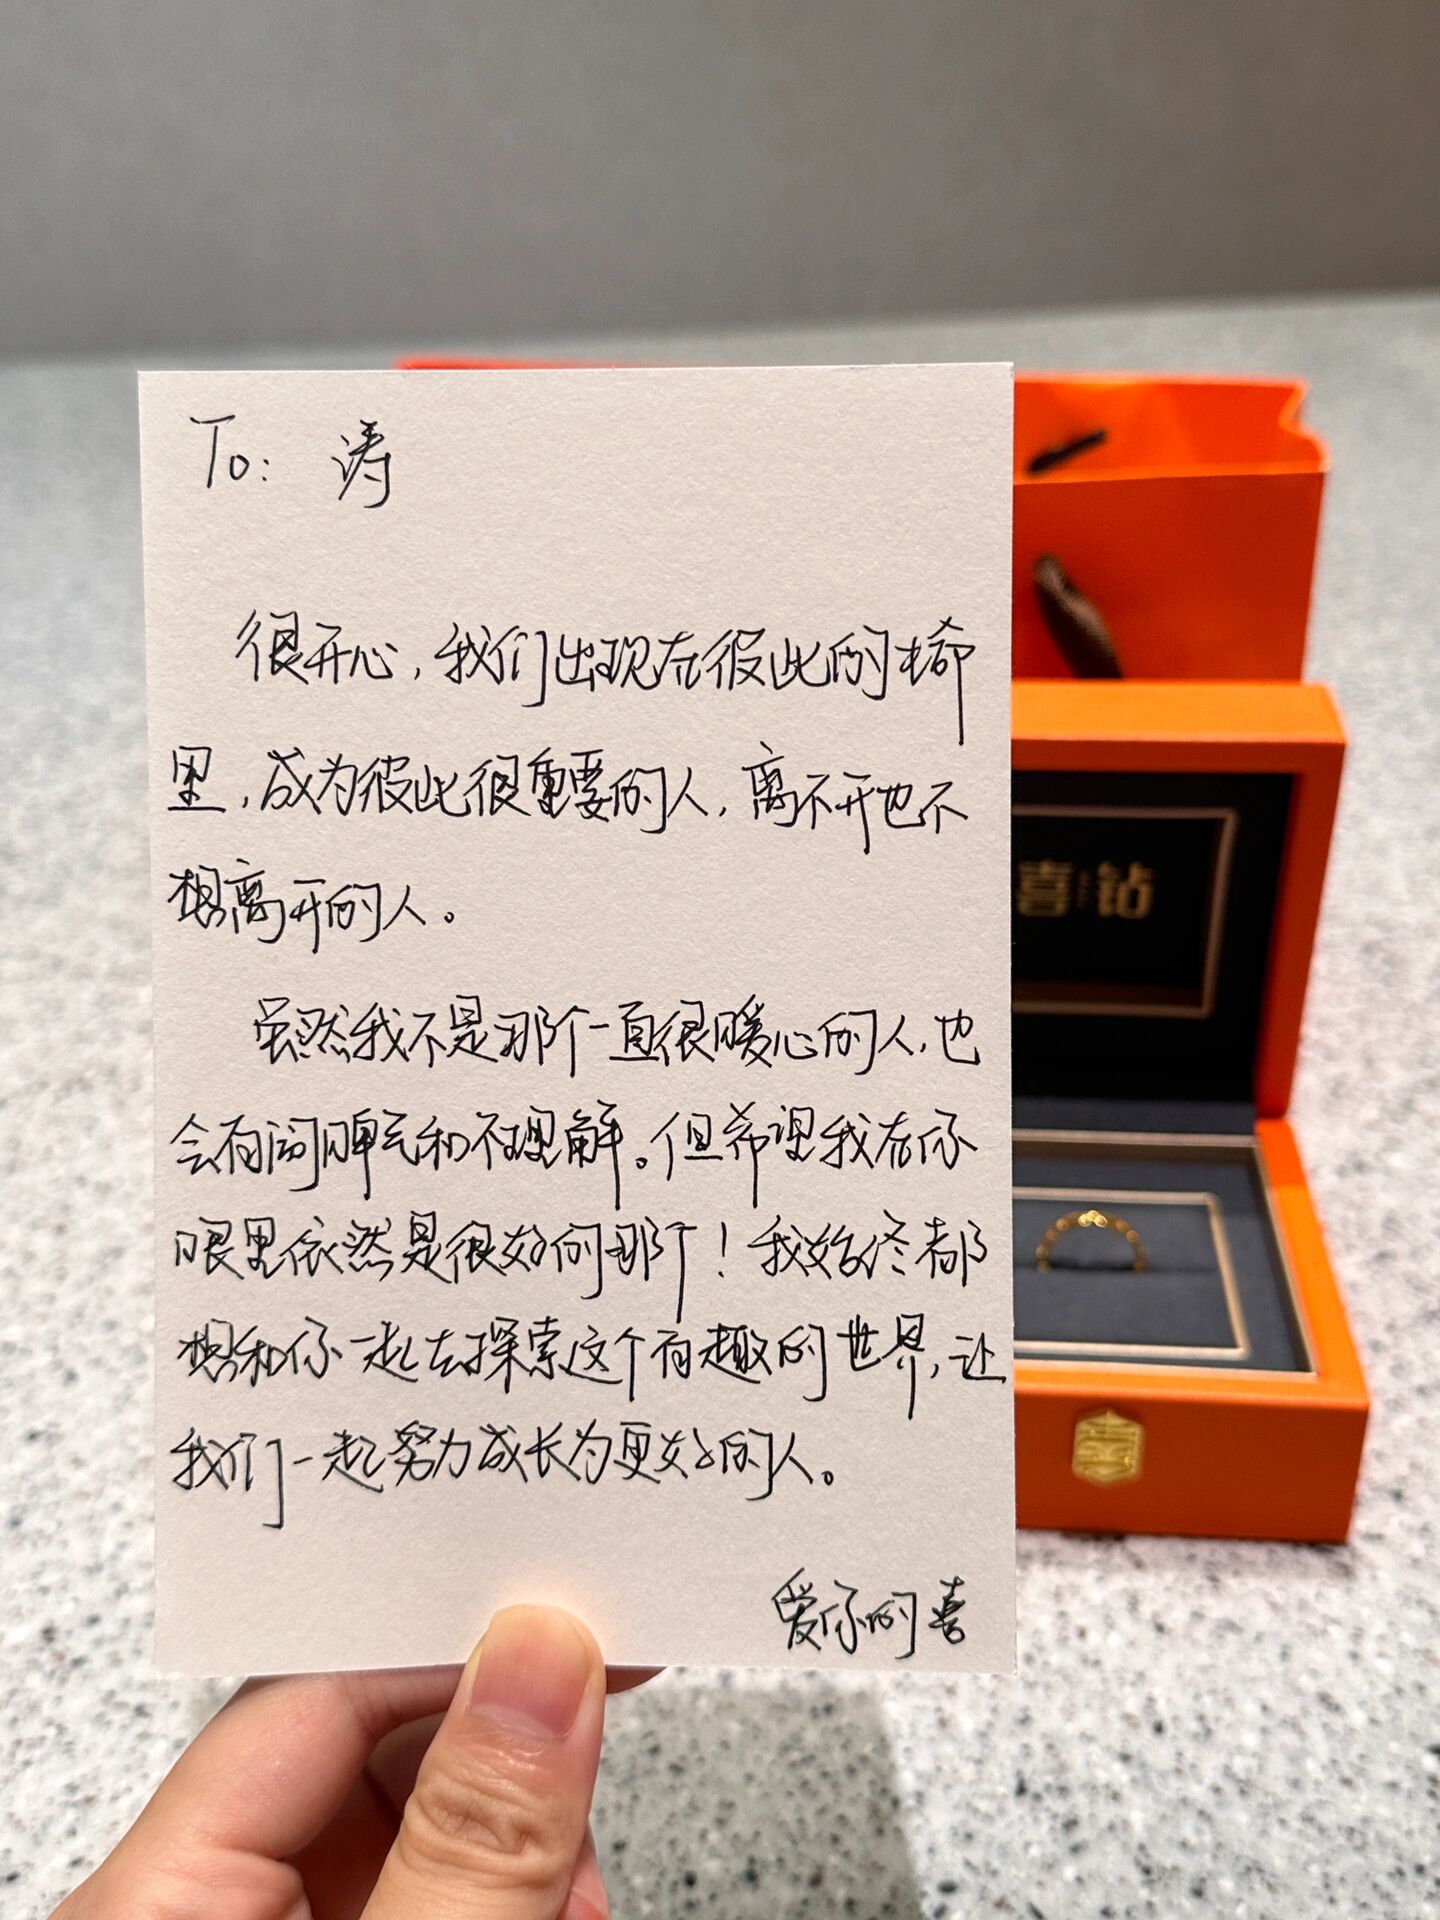 To: 涛
很开心，我们出现在彼此的生命
里，成为彼此很重要的人，离不开也不
想离开的人。
虽然我不是那个一直很暖心的人，也
会有闹脾气和不理解。但希望我在你
眼里依然是很好的那个！我始终都
想和你一起去探索这个有趣的世界，让
我们一起努力成长为更好的人。
爱你的喜
喜钻